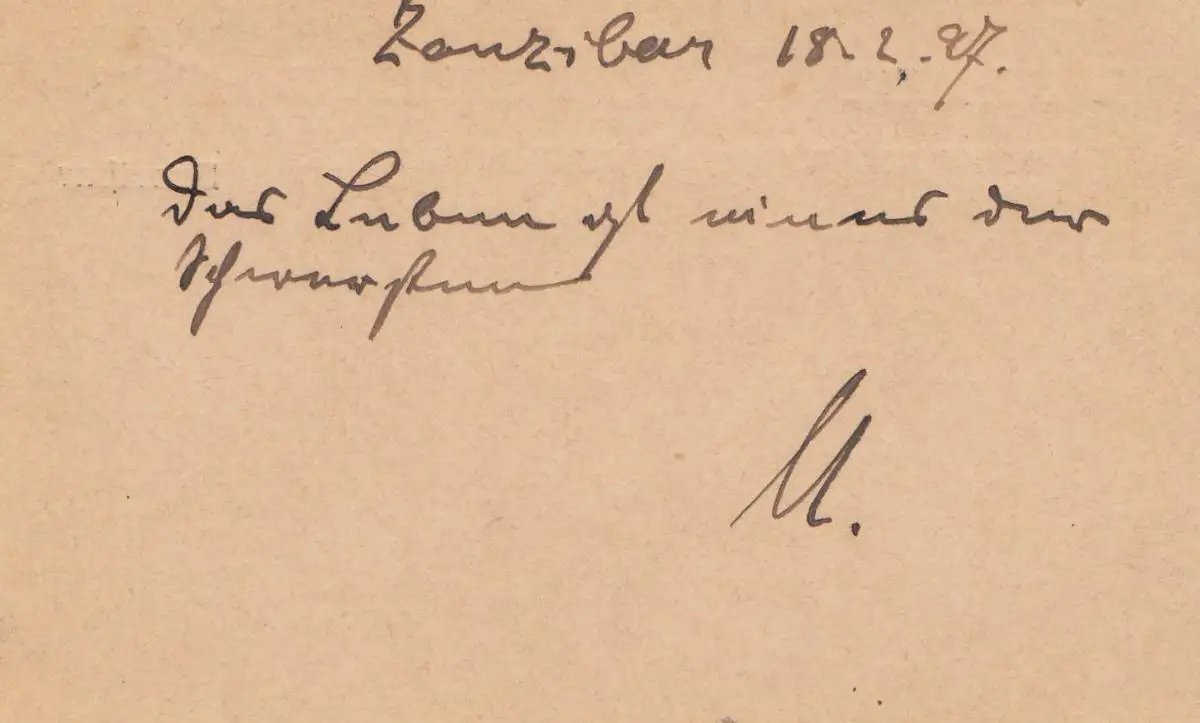 Zanzibar 18. 2. 97.
Das Leben ist eines der
Schwersten
U.